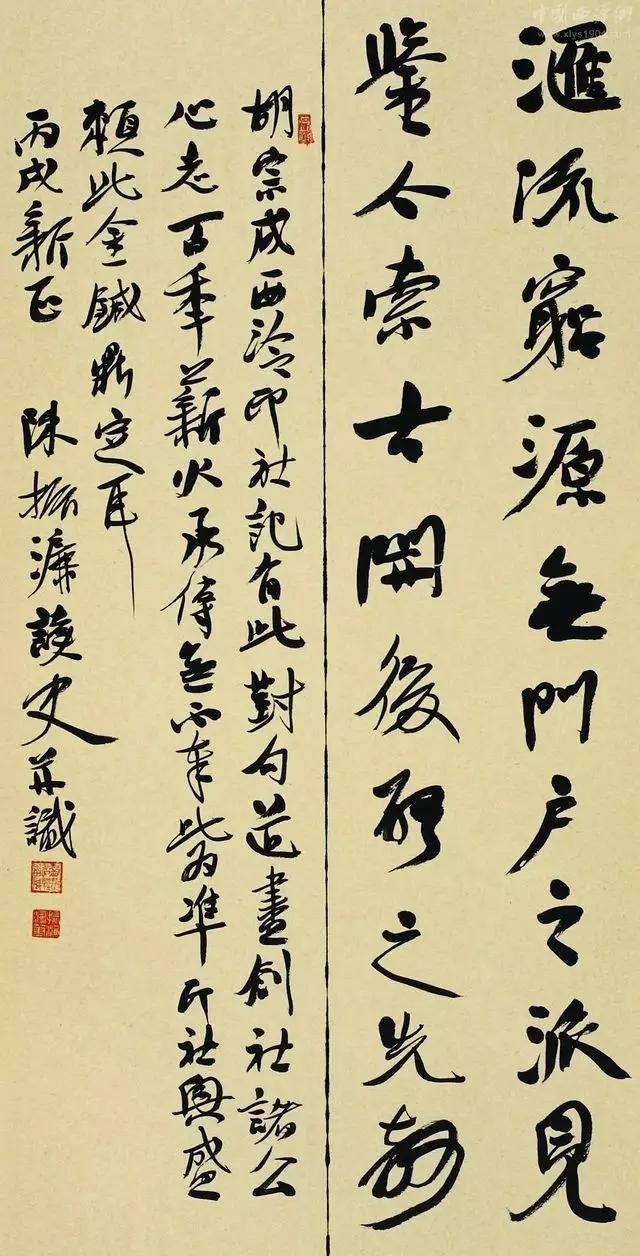 滙流窮源無門户之派見
鑒今索古開後啟之先聲
胡宗成西泠印社記有此對句道盡創社諸公
心志百秊薪火承傳無不奉此為準印社興盛
賴此金鍼鼎定耳
丙戌新正 陳振濂讀史并識
中国西泠网
www.xlys1904.com